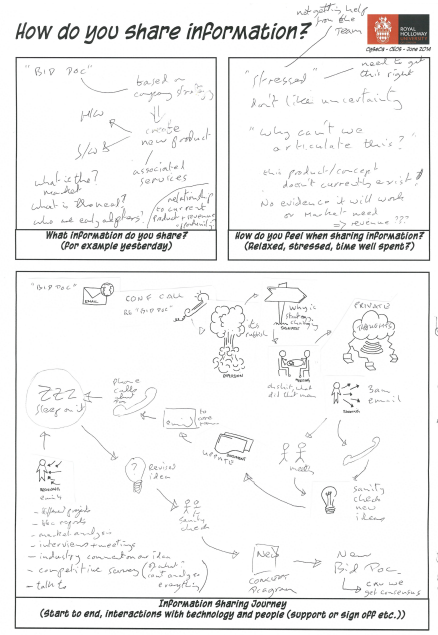 How do you share information?
not getting help
from the
Team
ROYAL
HOLLOWAY
UNIVERSITY
CySeCa - CSCG - June 2014
"BID DOC"
based on
company strategy
H/W
S/W
create
new product
/
associated
services
what is the?
market
what is the need?
who we early adopters?
relationship
to current
product + revenue
opportunity
What information do you share?
(For example yesterday)
"Stressed"
need to get
this right
don't like uncertainty
"Why can't we
articulate this?"
this product/concept
doesn't currently exist!
No evidence it will work
or market need
=> revenue ???
How do you feel when sharing information?
(Relaxed, stressed, time well spent?)
"BID DOC"
EMAIL
CONF CALL
RE "BID DOC"
its
rubbish
EXPLOSION
why is
strategy
SIGNPOST
PRIVATE
THOUGHTS
MEETING
did that mean
3am
email
ZZZ
Sleep on it
phone
calls
email
to
more
UPDATE
DOCUMENT
?
Revise
idea
Sanity
check
Sanity
check
new
ideas
email
- different projects
- market analysis
- interviews + meetings
- industry comment on idea
- competitive survey (
can't analyse
everything)
- talk to
New
CONCEPT
DIAGRAM
New
Bid Doc
can we
get consensus
Information Sharing Journey
(Start to end, interactions with technology and people (support or sign off etc.))